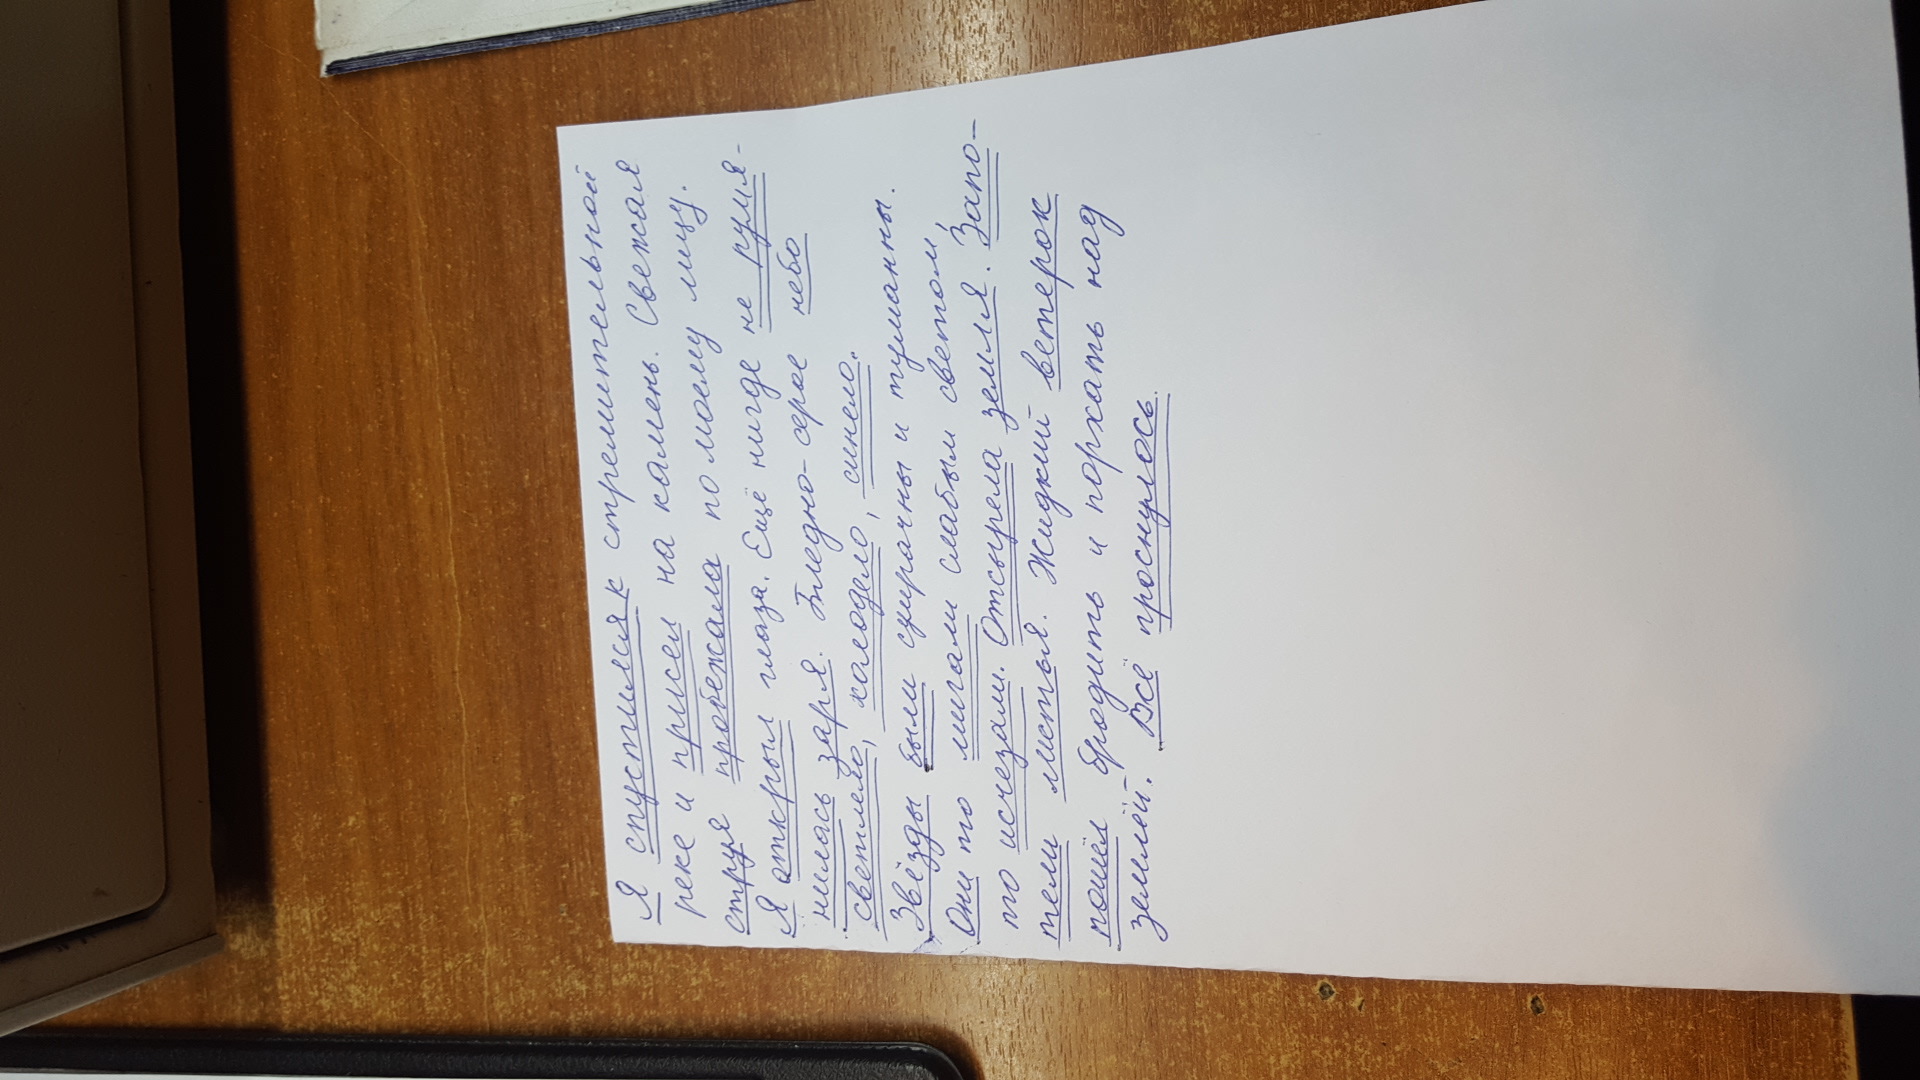 Я спустился к стремительной
реке и присел на камень. Свежая
струя пробежала по моему лицу.
Я открыл глаза. Ещё нигде не румя-
нилась заря. Бледно-серое небо
светлело, холодело, синело.
Звёзды были сумрачны и туманны.
Они то мигали слабым светом,
то исчезали. Отсырела земля. Запо-
тели листья. Жидкий ветерок
пошёл бродить и порхать над
землёй. Всё проснулось.